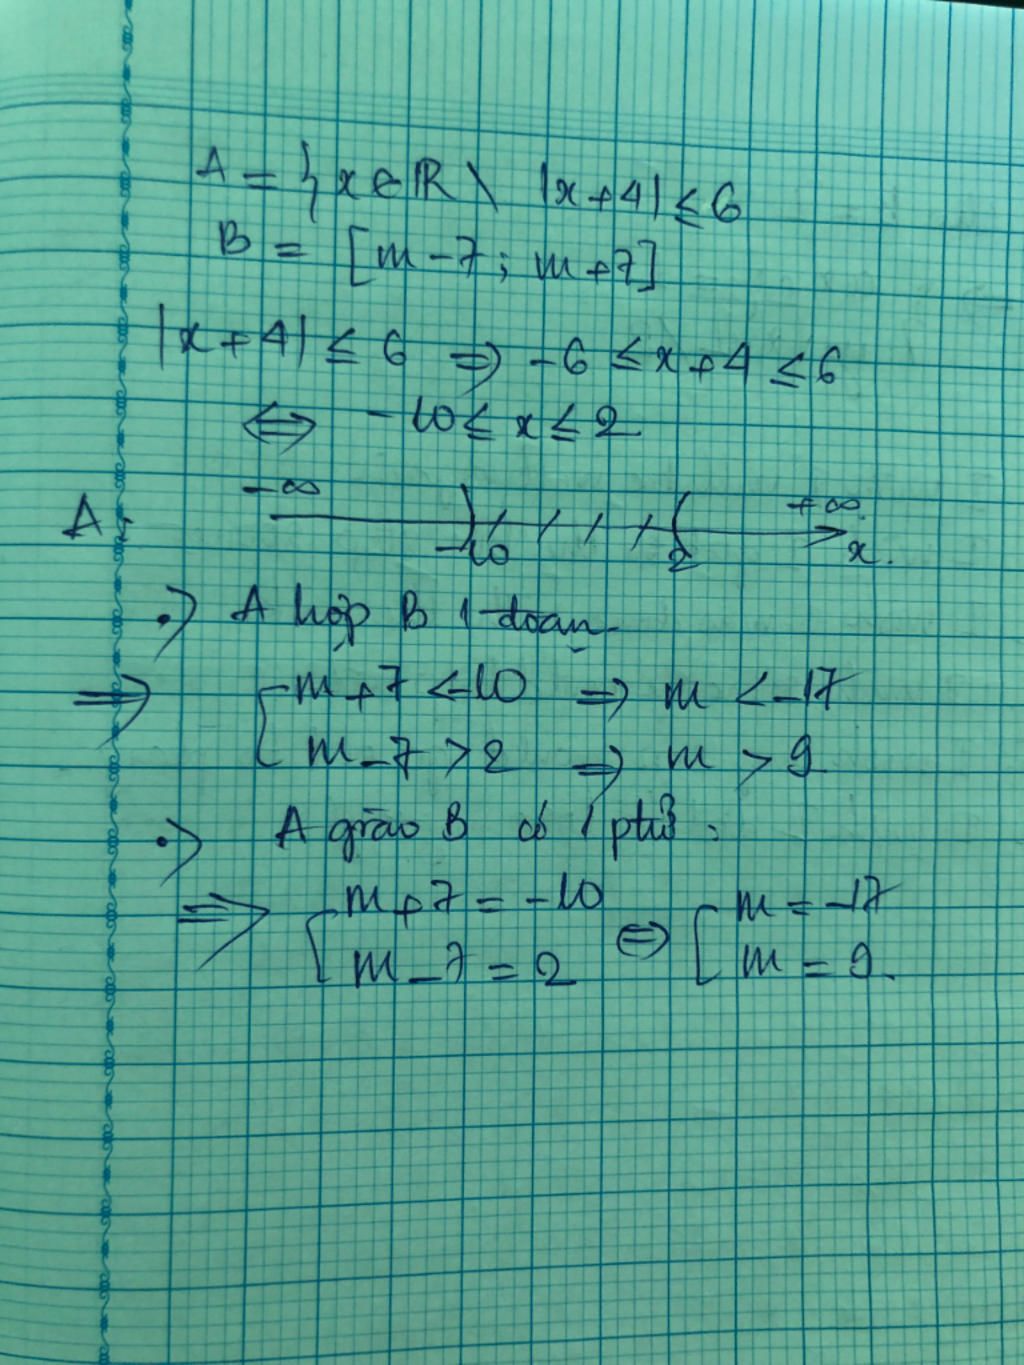 A = { x ∈ ℝ \ |x + 4| ≤ 6
B = [m - 7 ; m + 7]
|x + 4| ≤ 6 ⇒ -6 ≤ x + 4 ≤ 6
⇔ -10 ≤ x ≤ 2
-∞ +∞
A: ) / / / / (
-10 2 x.
•) A hợp B 1 đoạn
⇒ [ m + 7 < -10 ⇒ m < -17
m - 7 > 2 ⇒ m > 9
•) A giao B có 1 ptử :
⇒ [ m + 7 = -10 ⇔ [ m = -17
m - 7 = 2 m = 9.